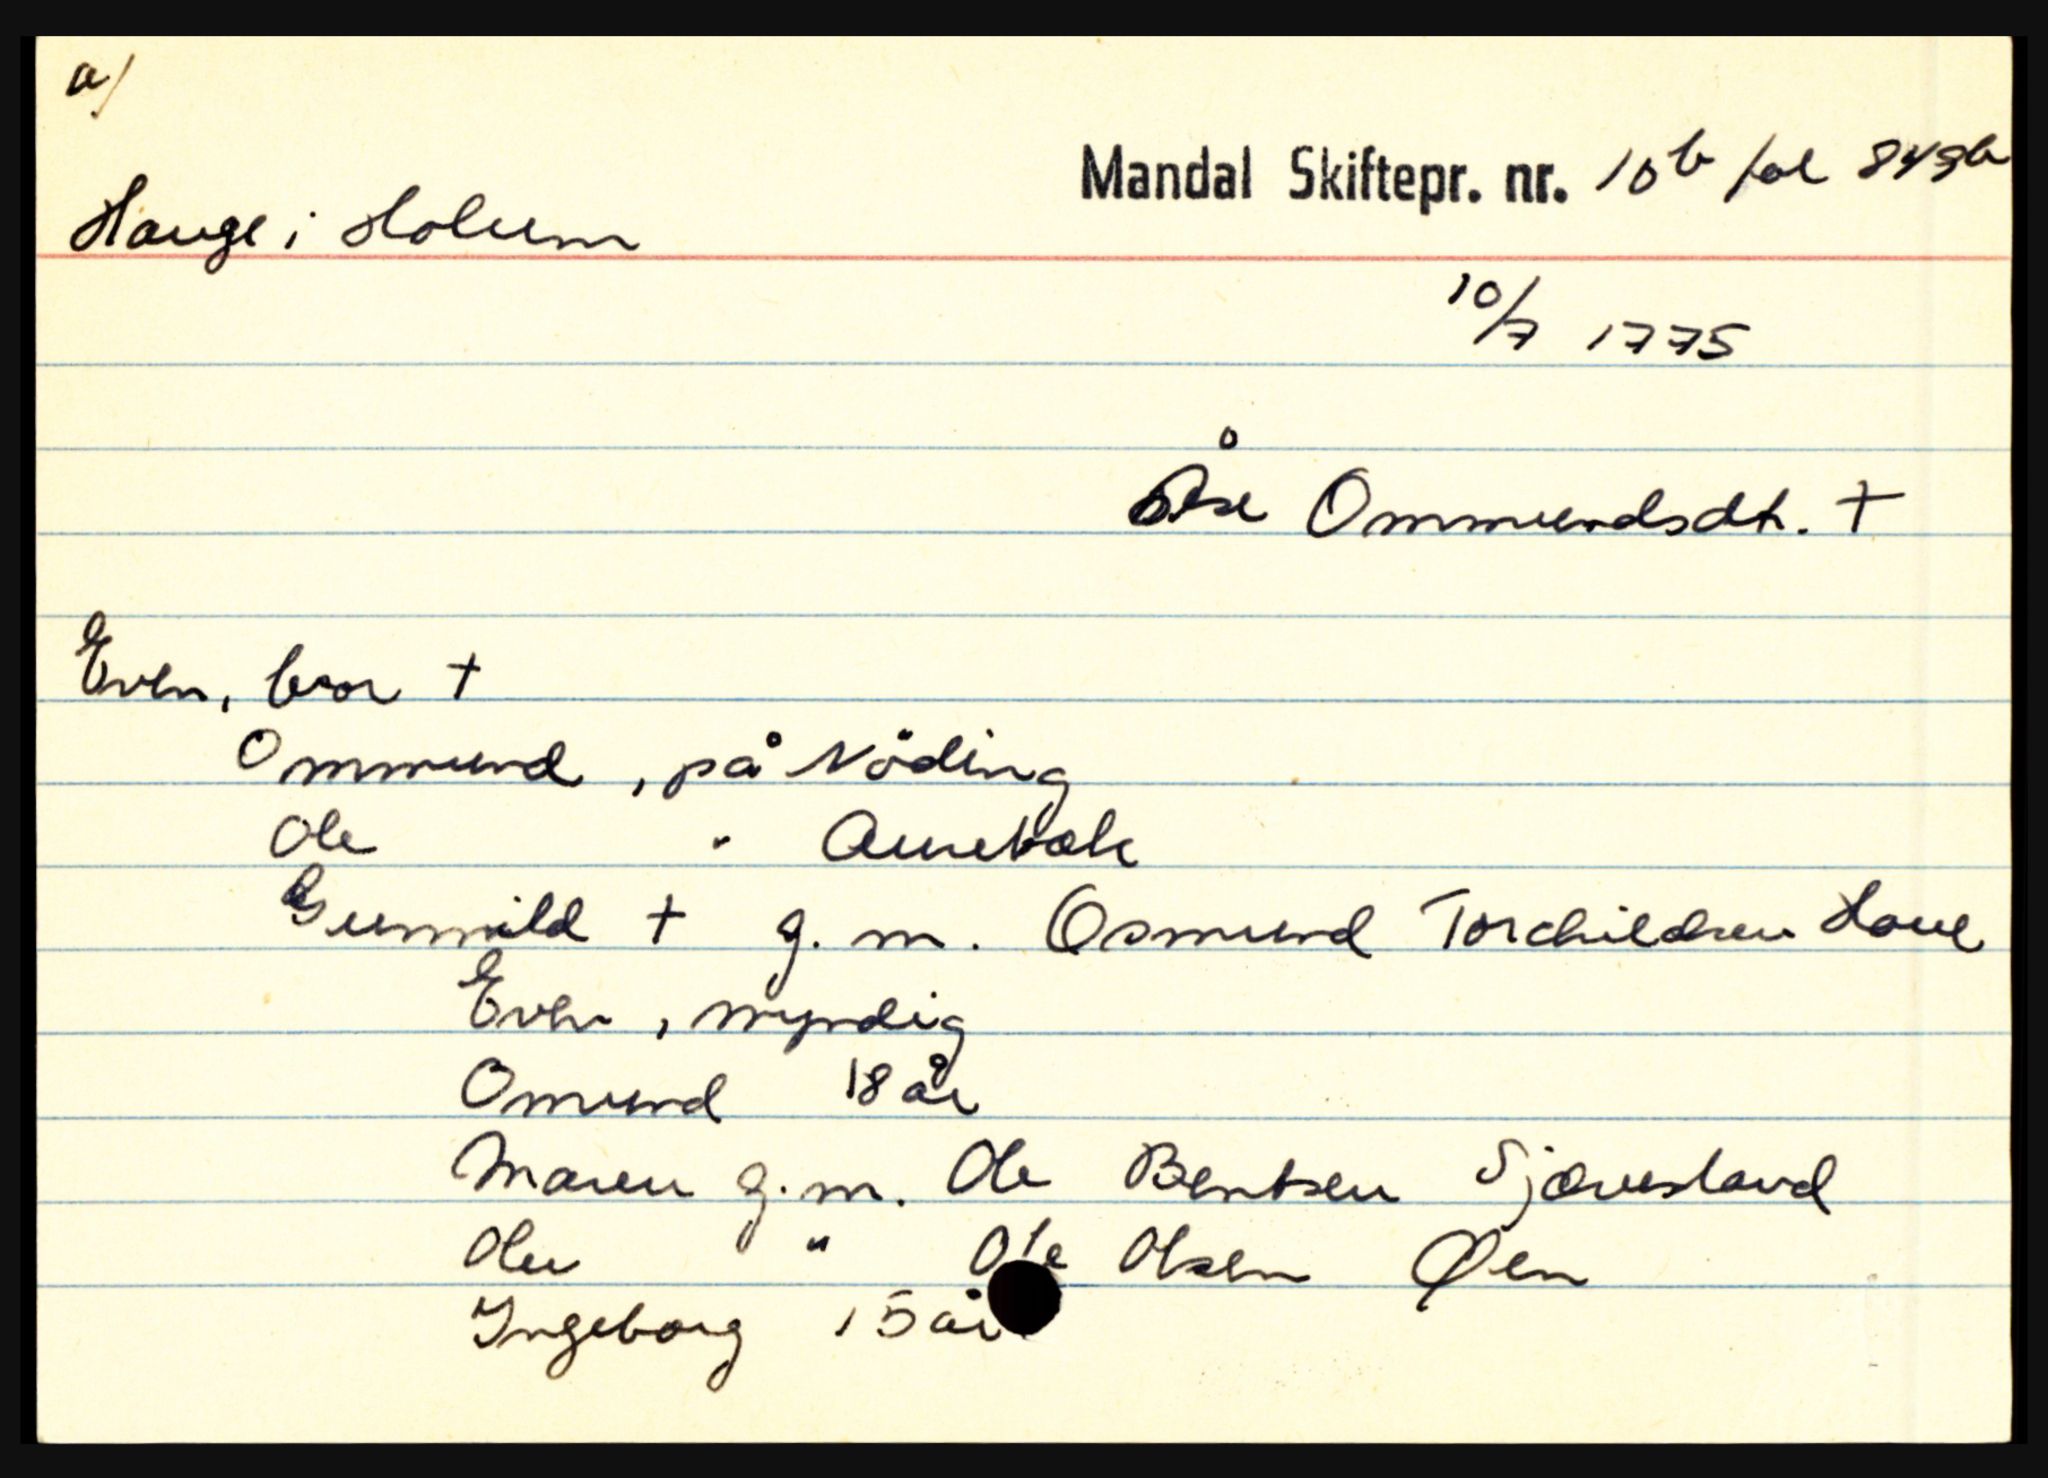 a/
Mandal Skiftepr. nr. 10b fol 849b
Hauge i Holum
10/7 1775
Åse Ommundsdt. †
Even, bror †
Ommund, på Nöding
Ole " Aurebæk
Gunnild † g. m. Osmund Torchildsen Haue
Even, myndig
Omund 18 år
Maren g. m. Ole Bentsen Sjævesland
Olu " Ole Olsen Øen
Ingeborg 15 år